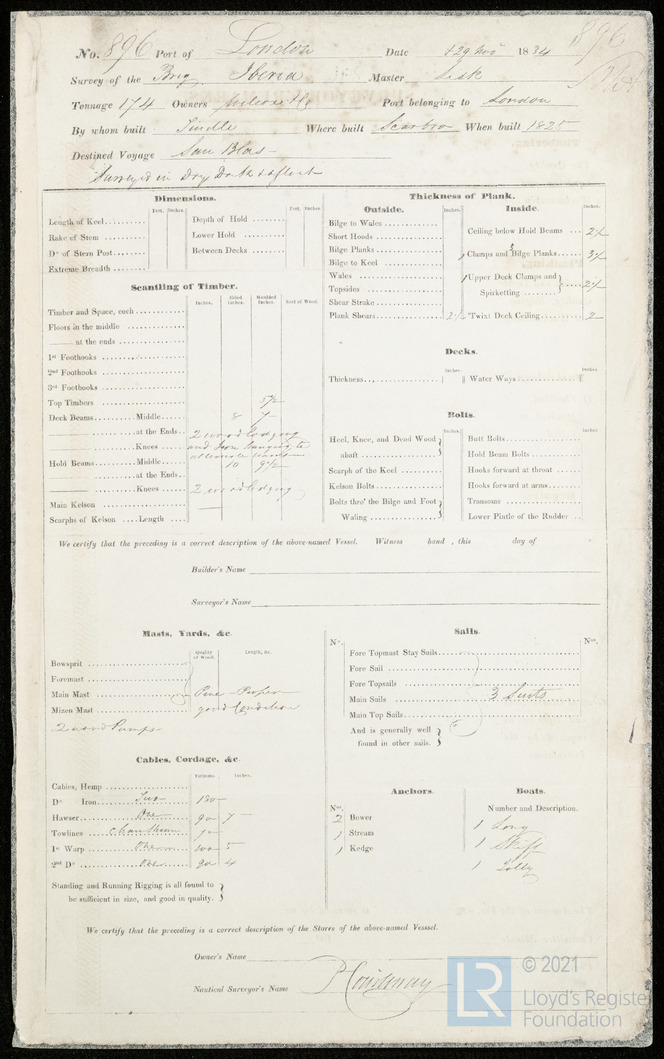 No. 896 Port of London Date 29 Nov 1834
896
Survey of the Brig Iberia Master Lisk
Tonnage 174 Owners Port belonging to London
By whom built Tindle Where built Scarbro When built 1825
Destined Voyage San Blas
Surveyed in Dry Dock & afloat
Dimensions.
Feet. Inches. Feet. Inches.
Length of Keel
Rake of Stem
Do of Stern Post
Extreme Breadth
Depth of Hold
Lower Hold
Between Decks
Scantling of Timber.
Inches. Sided Inches. Moulded Inches. Sort of Wood.
Timber and Space, each
Floors in the middle
—— at the ends
1st Foothooks
2nd Foothooks
3rd Foothooks
Top Timbers 5½
Deck Beams Middle 8 7
at the Ends 2 wood lodging
Knees and Iron hanging to
alternate beams
Hold Beams Middle 10 9½
at the Ends
Knees 2 wood lodging
Main Kelson
Scarphs of Kelson —Length
Thickness of Plank.
Outside. Inches.
Bilge to Wales
Short Hoods
Bilge Planks
Bilge to Keel
Wales
Topsides
Shear Strake
Plank Shears 2½
Inside. Inches.
Ceiling below Hold Beams 2½
Clamps and Bilge Planks 3½
Upper Deck Clamps and
Spirketting 2½
'Twixt Deck Ceiling 2
Decks.
Inches. Inches.
Thickness Water Ways
Bolts.
Inches. Inches
Heel, Knee, and Dead Wood
abaft
Scarph of the Keel
Kelson Bolts
Bolts thro' the Bilge and Foot
Waling
Butt Bolts
Hold Beam Bolts
Hooks forward at throat
Hooks forward at arms
Transoms
Lower Pintle of the Rudder
We certify that the preceding is a correct description of the above-named Vessel. Witness hand , this day of
Builder's Name
Surveyor's Name
Masts, Yards, &c.
Quality of Wood. Length, &c.
Bowsprit
Foremast
Main Mast Pine Proper
Mizen Mast good Condition
2 wood Pumps
Sails.
No. Nos.
Fore Topmast Stay Sails
Fore Sail
Fore Topsails
Main Sails 3 Suits
Main Top Sails
And is generally well
found in other sails.
Cables, Cordage, &c.
Fathoms Inches.
Cables, Hemp
Do Iron Two 180
Hawser One 90 7
Towlines
1st Warp 5
2nd Do One 90 4
Standing and Running Rigging is all found to
be sufficient in size, and good in quality.
Anchors.
Nos.
2 Bower
1 Stream
1 Kedge
Boats.
Number and Description.
1 Long
1 Skiff
1 Jolly
We certify that the preceding is a correct description of the Stores of the above-named Vesssel.
Owner's Name
Nautical Surveyor's Name P Courtenay
LR
© 2021
Lloyd's Register
Foundation